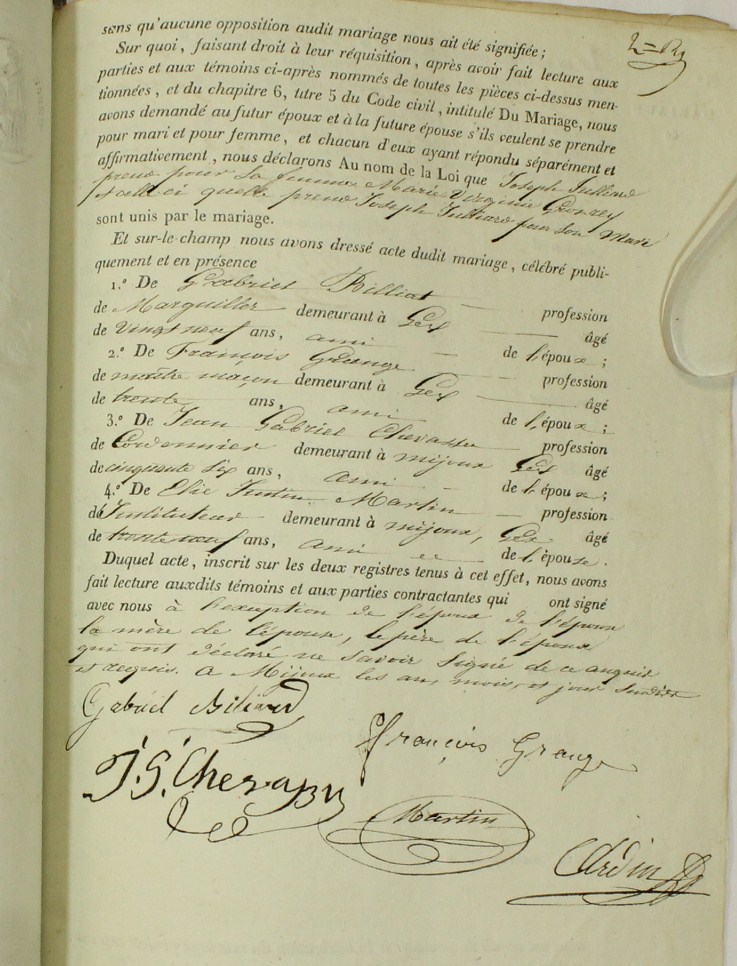 sens qu'aucune opposition audit mariage nous ait été signifiée ;
Sur quoi, faisant droit à leur réquisition, après avoir fait lecture aux
parties et aux témoins ci-après nommés de toutes les pièces ci-dessus men-
tionnées, et du chapitre 6, titre 5 du Code civil, intitulé Du Mariage, nous
avons demandé au futur époux et à la future épouse s'ils veulent se prendre
pour mari et pour femme, et chacun d'eux ayant répondu séparément et
affirmativement, nous déclarons Au nom de la Loi que Joseph Julliard
prend pour sa femme Marie Virginie
et celle ci quelle prend Joseph Julliard pour son Mari
sont unis par le mariage.
Et sur-le-champ nous avons dressé acte dudit mariage, célébré publi-
quement et en présence
1.º De Gabriel Billiat
profession
de Marguiller demeurant à Gex
âgé
de vingt neuf ans, ami de l'époux ;
2.º De François Grange
profession
de maitre maçon demeurant à Gex
âgé
de trente ans, ami de l'époux ;
3.º De Jean Gabriel Chevassu profession
de Cordonnier demeurant à mijoux Gex âgé
de cinquante six ans, ami de l'époux ;
4.º De Elie Justin Martin profession
de Instituteur demeurant à mijoux, Gex âgé
de trente neuf ans, ami de l'épouse.
Duquel acte, inscrit sur les deux registres tenus à cet effet, nous avons
fait lecture auxdits témoins et aux parties contractantes qui ont signé
avec nous à l'exception de l'époux de l'épouse
la mère de l'époux, le père de l'épouse
qui ont déclaré ne savoir signé de ce enquis
et requis. A Mijoux les an, mois, et jour
Gabriel Billiard
François Grange
J. G. Chevassu
Martin